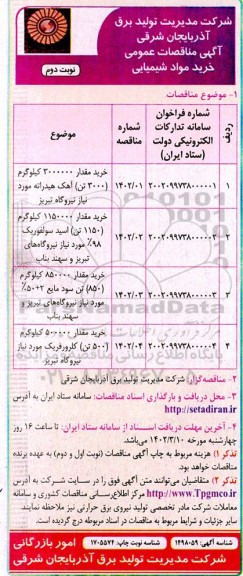 شرکت مدیریت تولید برق
آذربایجان شرقی
آگهی مناقصات عمومی
خرید مواد شیمیایی
نوبت دوم
۱- موضوع مناقصات
ردیف
شماره فراخوان
سامانه تدارکات
الکترونیکی دولت
(ستاد ایران)
شماره
مناقصه
موضوع
۱
۲۰۰۲۰۹۹۷۳۸۰۰۰۰۰۱
۱۴۰۲/۰۱
خرید مقدار ۳۰۰۰۰۰۰ کیلوگرم
(۳۰۰۰ تن) آهک هیدراته مورد
نیاز نیروگاه تبریز
۲
۲۰۰۲۰۹۹۷۳۸۰۰۰۰۰۲
۱۴۰۲/۰۲
خرید مقدار ۱۱۵۰۰۰۰ کیلوگرم
(۱۱۵۰ تن) اسید سولفوریک
۹۸٪ مورد نیاز نیروگاه‌های
تبریز و سهند بناب
۳
۲۰۰۲۰۹۹۷۳۸۰۰۰۰۰۳
۱۴۰۲/۰۳
خرید مقدار ۸۵۰۰۰۰ کیلوگرم
(۸۵۰ تن) سود مایع ۲+۵۰٪
مورد نیاز نیروگاه‌های تبریز و
سهند بناب
۴
۲۰۰۲۰۹۹۷۳۸۰۰۰۰۰۴
۱۴۰۲/۰۴
خرید مقدار ۵۰۰۰۰۰ کیلوگرم
(۵۰۰ تن) کلروفریک مورد نیاز
نیروگاه تبریز
۲- مناقصه‌گزار: شرکت مدیریت تولید برق آذربایجان شرقی
۳- محل دریافت و بارگذاری اسناد مناقصات: سامانه ستاد ایران به آدرس
http://setadiran.ir
۴- آخرین مهلت دریافت اسناد از سامانه ستاد ایران: تا ساعت ۱۶ روز
چهارشنبه مورخه ۱۴۰۲/۳/۱۰ می‌باشد.
تذکر ۱) هزینه مربوط به چاپ آگهی مناقصات (نوبت اول و دوم) به عهده برنده
مناقصات خواهد بود.
تذکر ۲) متقاضیان می‌توانند متن آگهی فوق را در سایت شرکت به آدرس
http://www.Tpgmco.ir مرکز اطلاع‌رسانی مناقصات کشوری و سامانه
معاملات شرکت مادر تخصصی تولید نیروی برق حرارتی نیز ملاحظه نمایند.
سایر جزئیات و شرایط مربوط به مناقصات در اسناد مربوطه درج گردیده است.
شناسه آگهی: ۱۴۹۸۰۵۹
شناسه نوبت چاپ: ۱۷۰۵۵۷۴
امور بازرگانی
شرکت مدیریت تولید برق آذربایجان شرقی